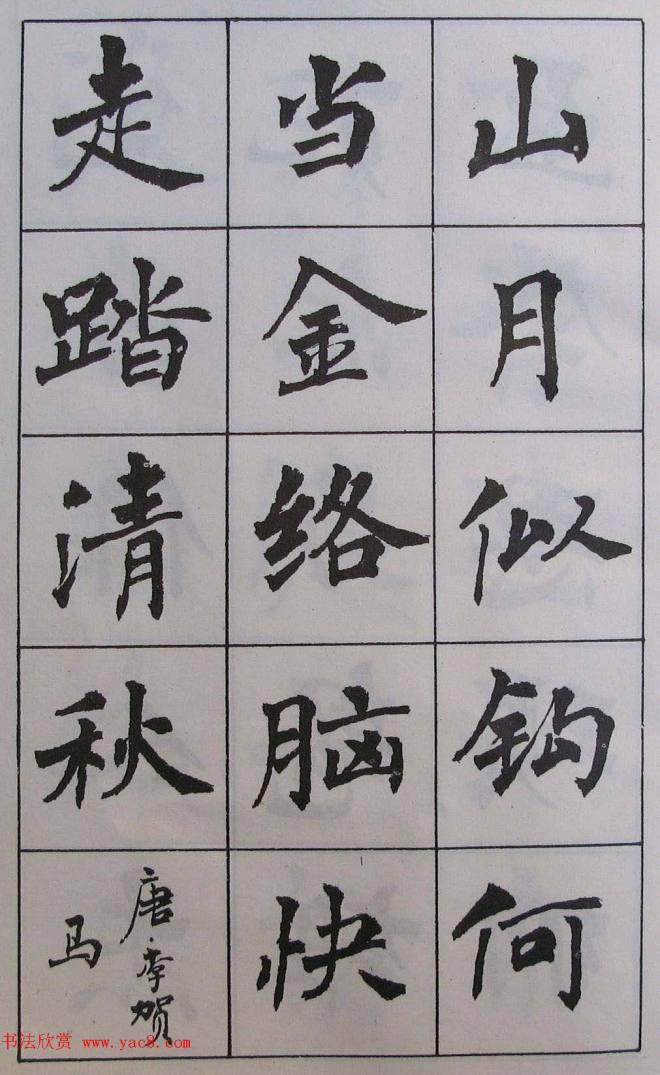 山月似钩何
当金络脑快
走踏清秋
唐李贺
马
书法欣赏
www.yac8.com